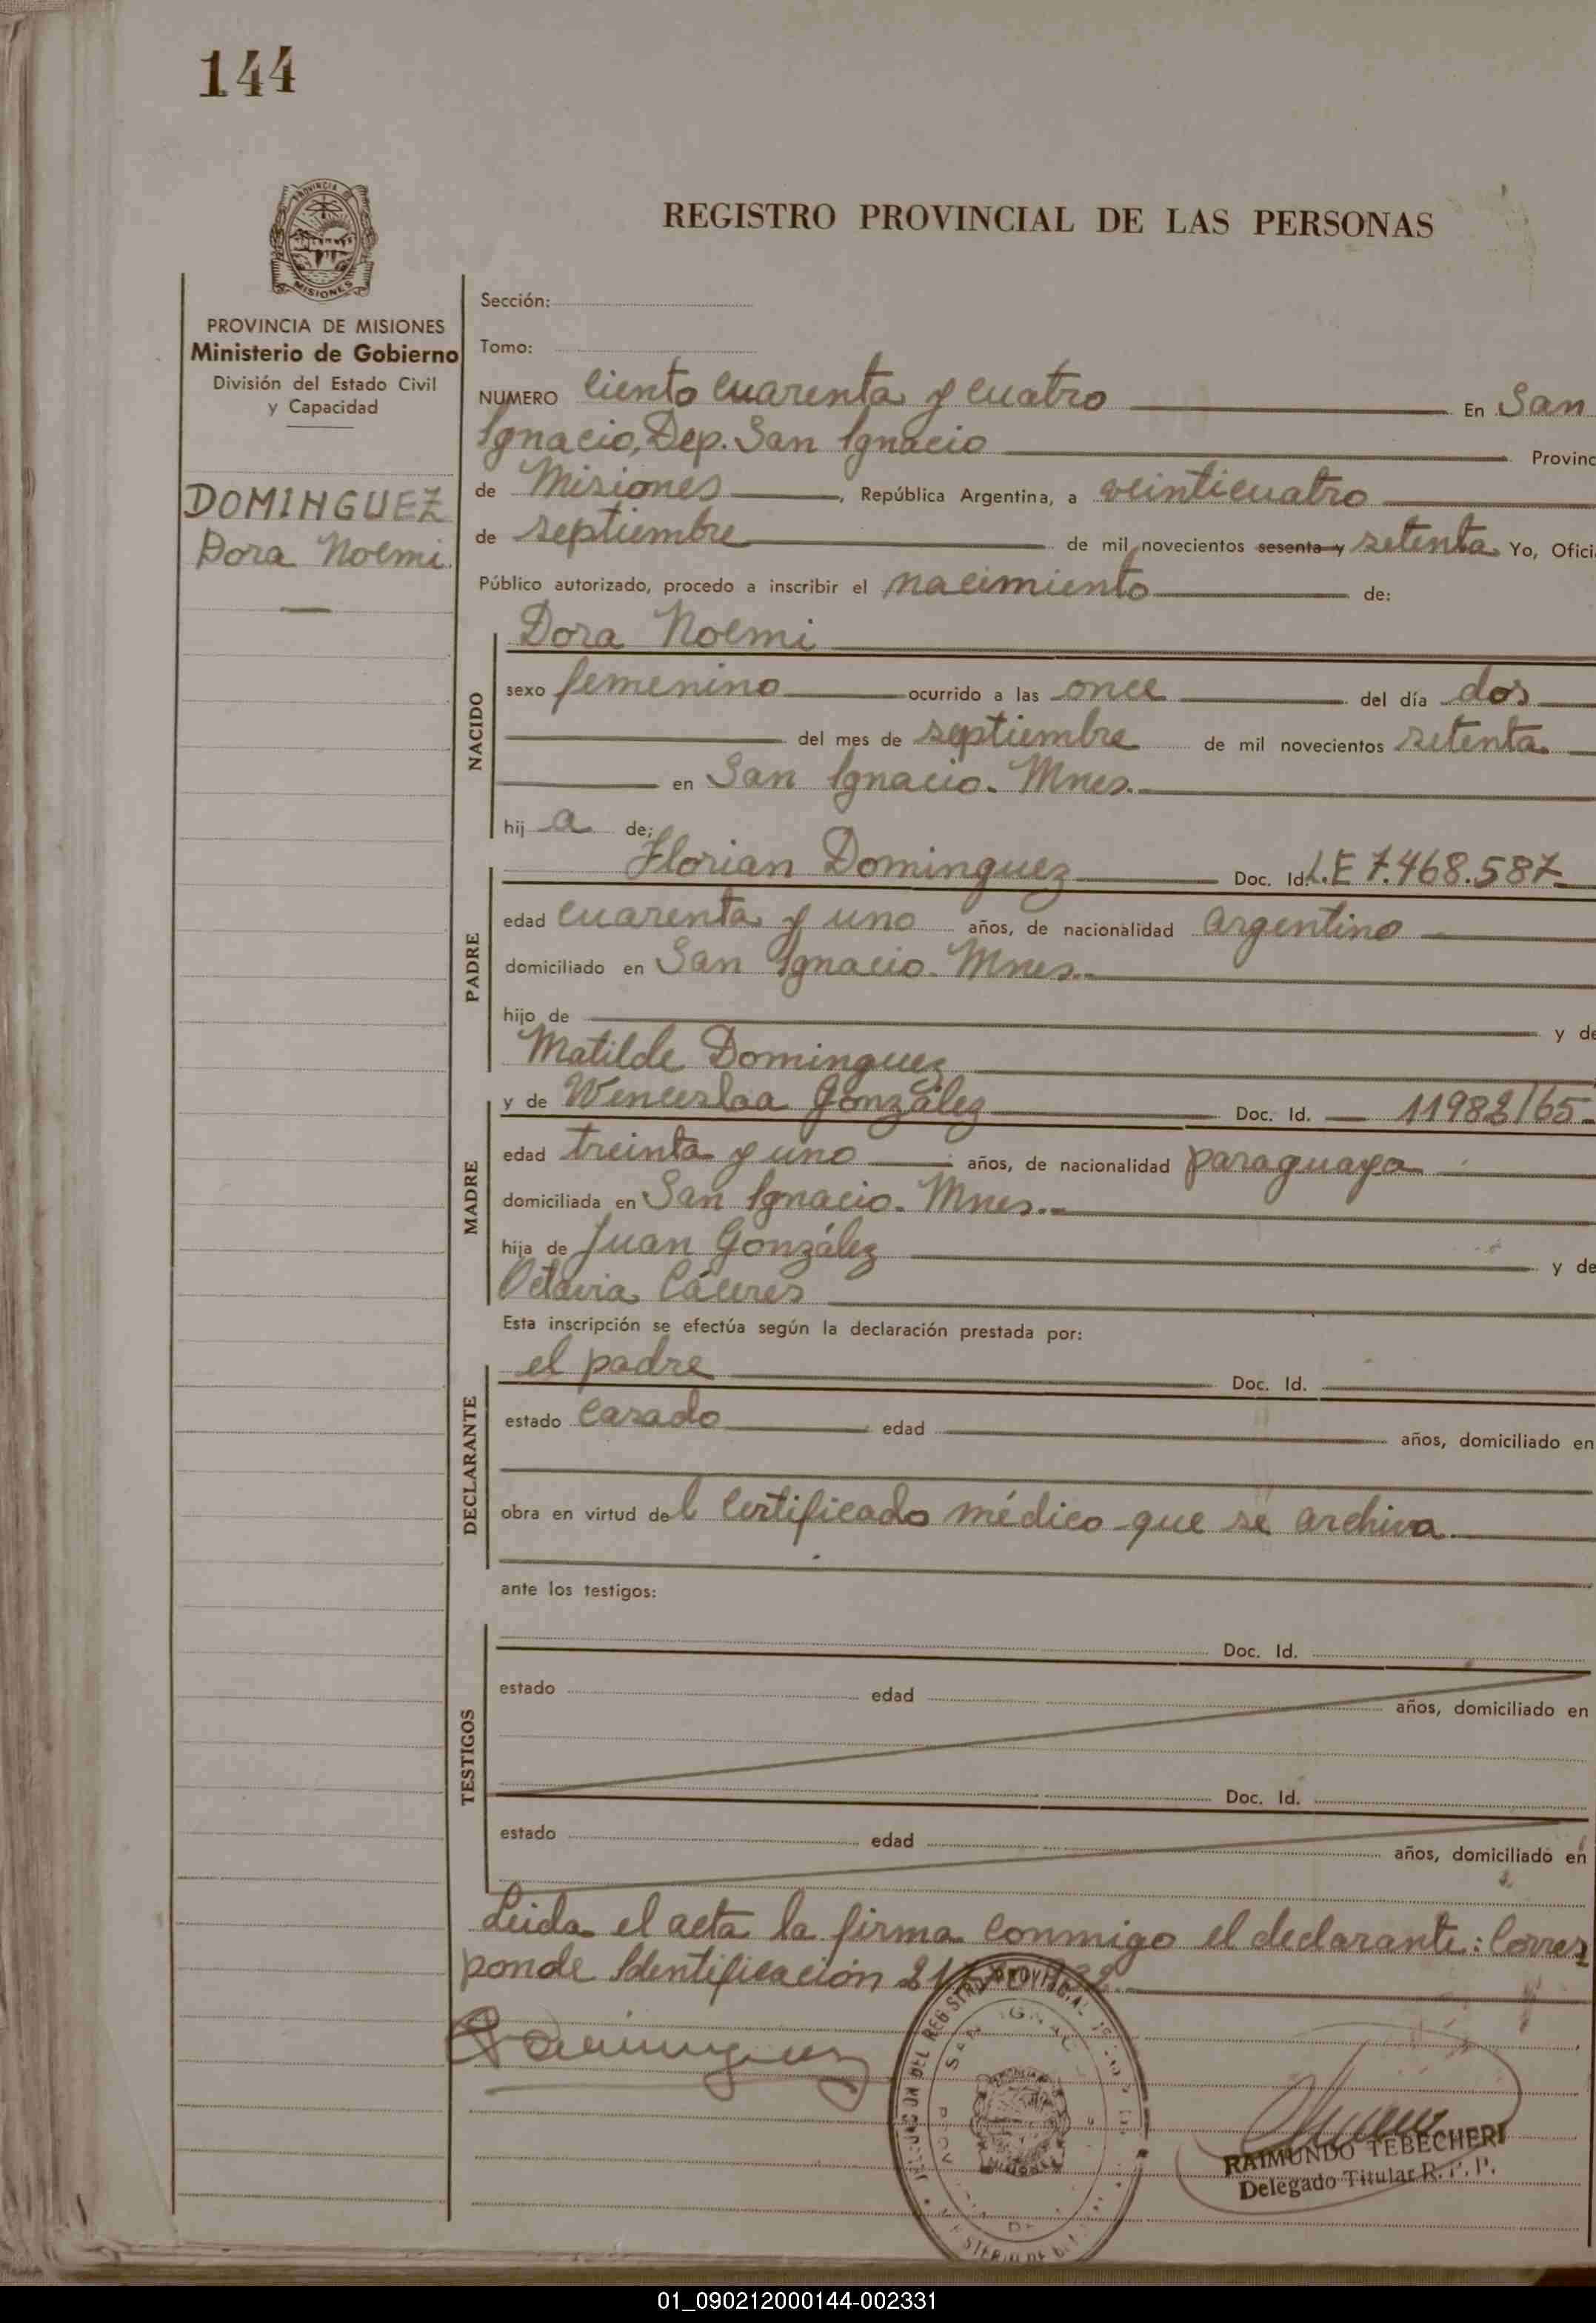 144
PROVINCIA DE
MISIONES
REGISTRO PROVINCIAL DE LAS PERSONAS
PROVINCIA DE MISIONES
Ministerio de Gobierno
División del Estado Civil
y Capacidad
DOMINGUEZ
Dora Noemi.
Sección:
Tomo:
NUMERO Ciento cuarenta y cuatro En San
Ignacio, Dep. San Ignacio Provinc
de Misiones, República Argentina, a veinticuatro
de septiembre de mil novecientos sesenta y setenta Yo, Ofici
Público autorizado, procedo a inscribir el nacimiento de:
NACIDO
Dora Noemi
sexo femenino ocurrido a las once del día dos
del mes de septiembre de mil novecientos setenta
en San Ignacio. Mnes.
hij a de:
PADRE
Florian Dominguez Doc. Id. L.E 7.468.587
edad cuarenta y uno años, de nacionalidad argentino
domiciliado en San Ignacio. Mnes.
hijo de y de
Matilde Dominguez
MADRE
y de Wenceslaa González Doc. Id. 11982/65
edad treinta y uno años, de nacionalidad paraguaya
domiciliada en San Ignacio. Mnes.
hija de Juan González y de
Octavia Cáceres
Esta inscripción se efectúa según la declaración prestada por:
DECLARANTE
el padre Doc. Id.
estado Casado edad años, domiciliado en
obra en virtud de l Certificado médico que se archiva
ante los testigos:
TESTIGOS
Doc. Id.
estado edad años, domiciliado en
Doc. Id.
estado edad años, domiciliado en
Leida el acta la firma conmigo el declarante: Corres
ponde Identificación
Dominguez
RAIMUNDO TEBECHERI
Delegado Titular R. P. P.
01_090212000144-002331